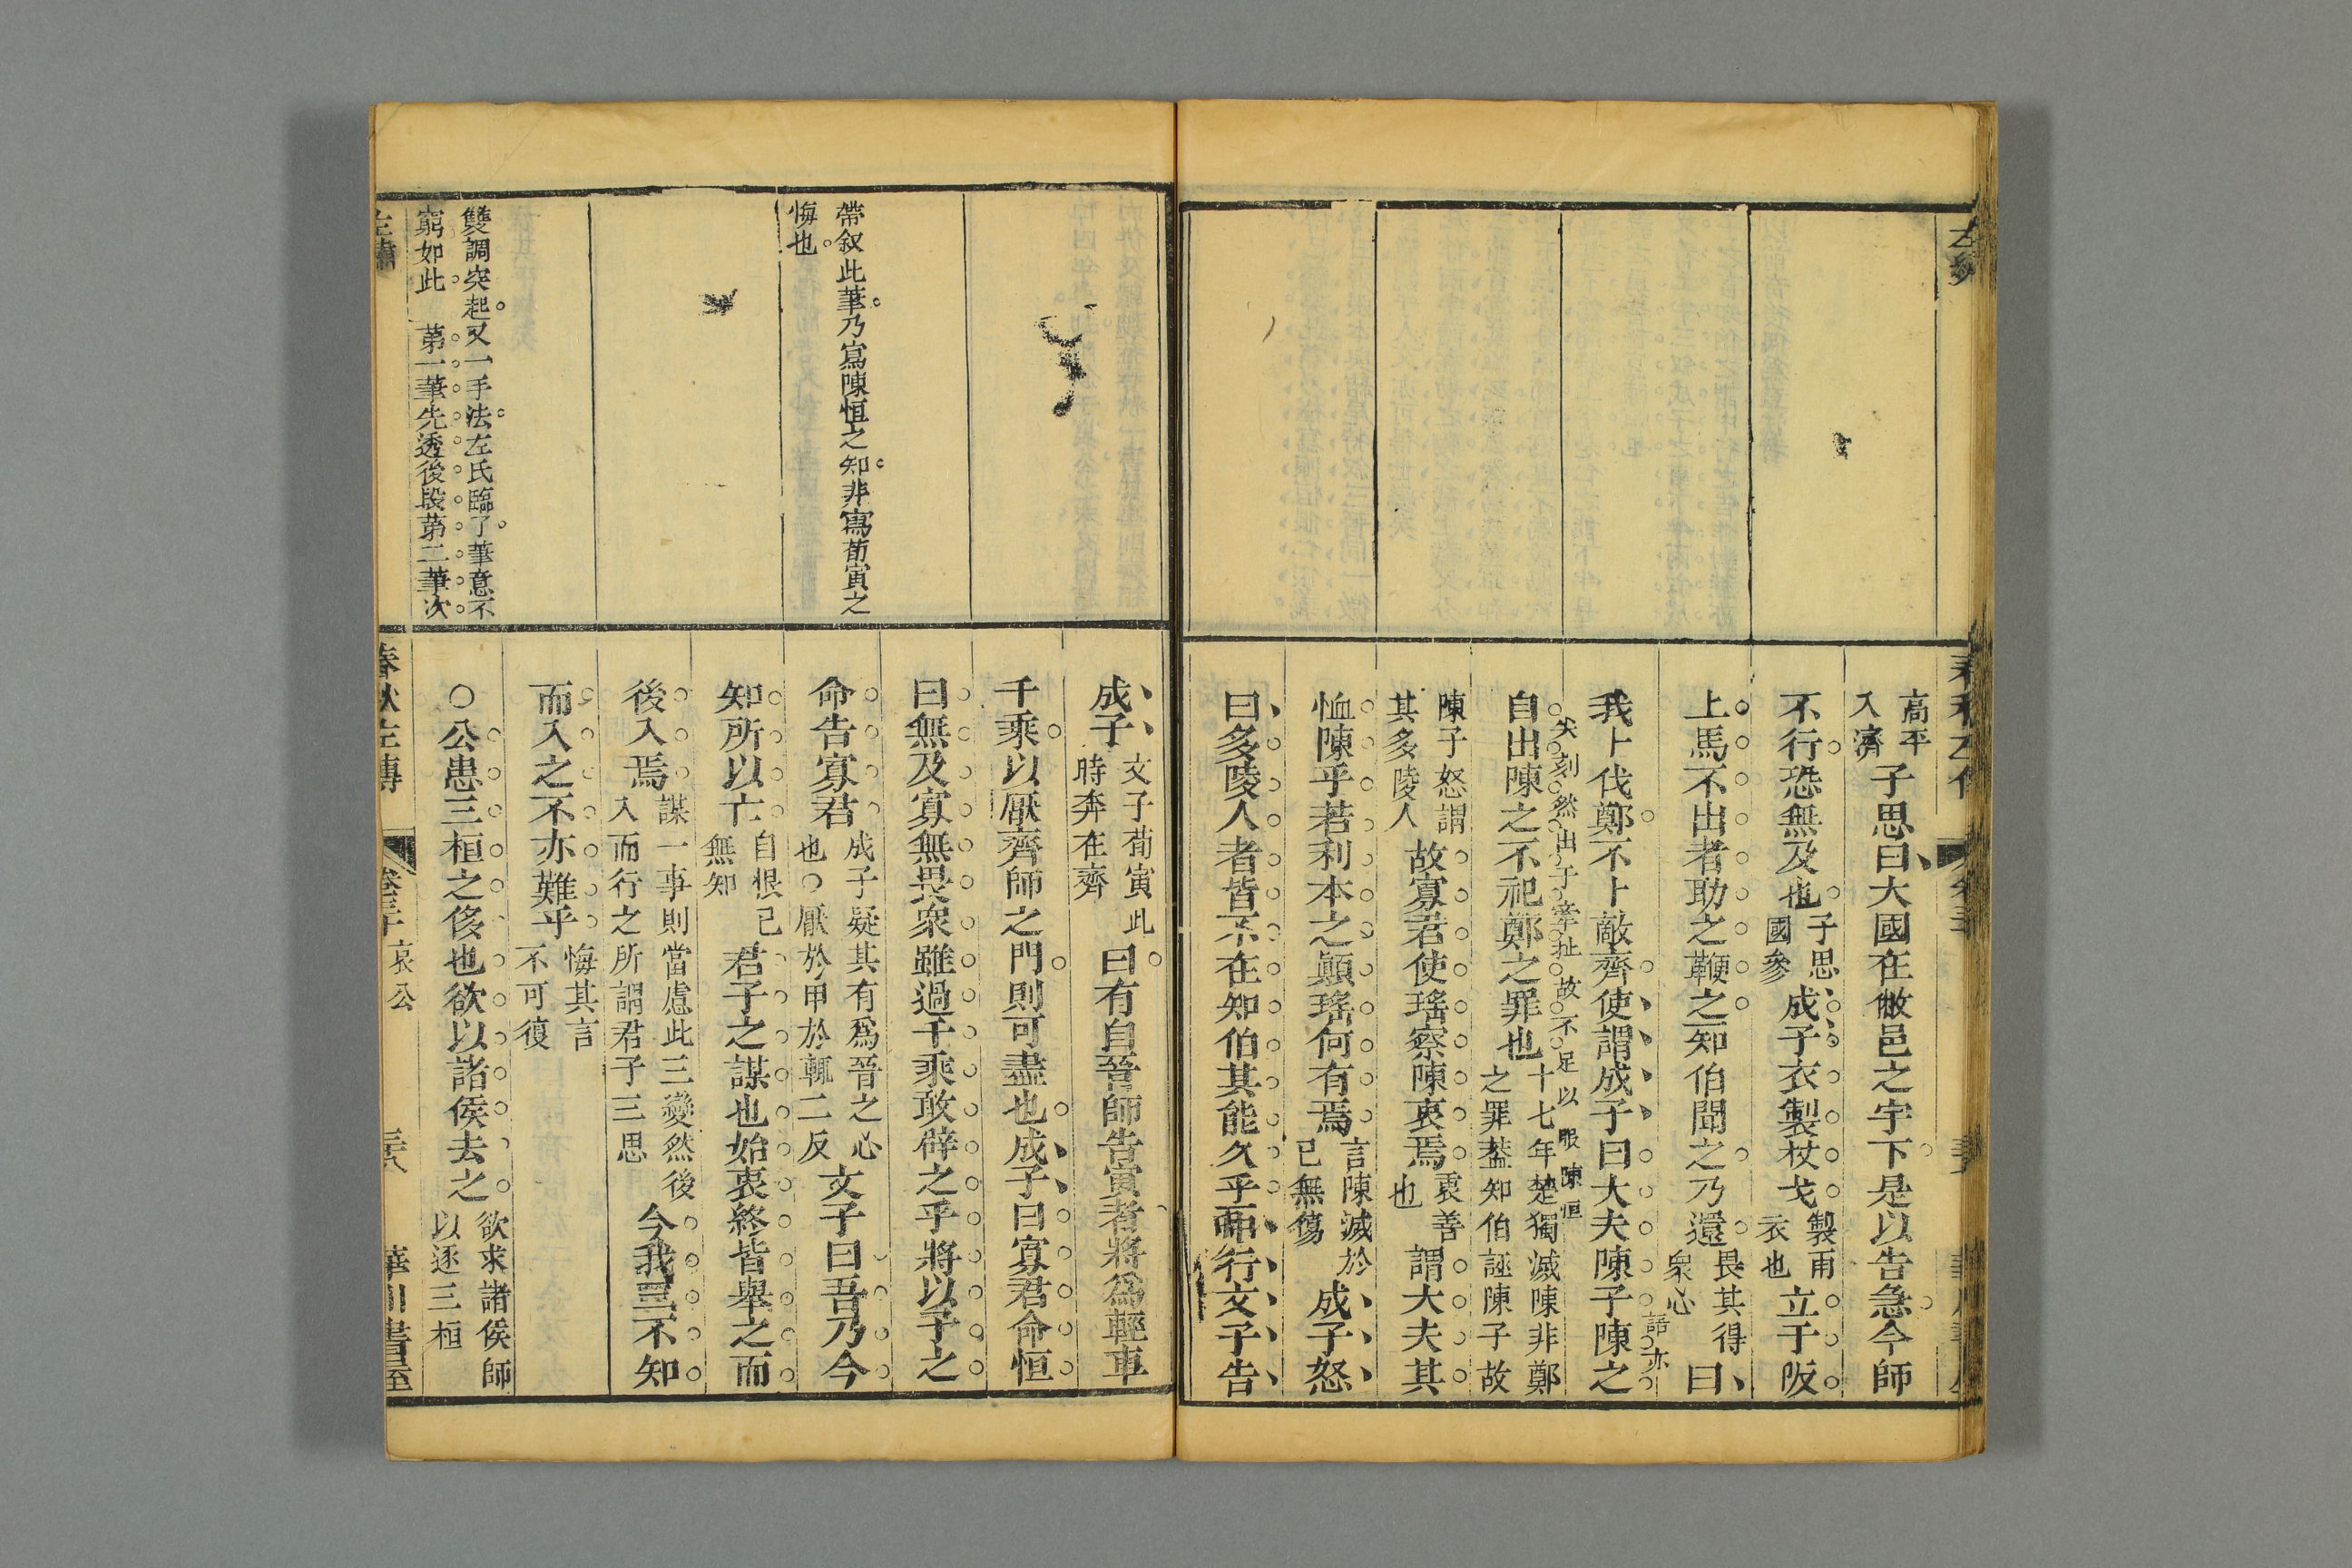 高平
入濟
子思曰大國在敝邑之宇下是以告急今師
不行恐無及也
子思
國參
成子衣製杖戈
製雨
衣也
立于阪
上馬不出者助之鞭之知伯聞之乃還
畏其得
衆心
曰
我卜伐鄭不卜敵齊使謂成子曰大夫陳子陳之
語亦
尖刻然出于牽扯故不足以服陳恒
自出陳之不祀鄭之罪也
十七年楚獨滅陳非鄭
之罪葢知伯誣陳子故
陳子怒謂
其多陵人
故寡君使瑤察陳衷焉
衷善
也
謂大夫其
恤陳乎若利本之顚瑤何有焉
言陳滅於
已無傷
成子怒
曰多陵人者皆不在知伯其能久乎中行文子告
成子
文子荀寅此
時奔在齊
曰有自晉師告寅者將爲輕車
千乘以厭齊師之門則可盡也成子曰寡君命恒
曰無及寡無畏衆雖過千乘敢辟之乎將以子之
命告寡君
成子疑其有爲晉之心
也○厭於甲於輒二反
文子曰吾乃今
知所以亡
自恨已
無知
君子之謀也始衷終皆舉之而
後入焉
謀一事則當慮此三變然後
入而行之所謂君子三思
今我三不知
而入之不亦難乎
悔其言
不可復
○公患三桓之侈也欲以諸侯去之
欲求諸侯師
以逐三桓
帶叙此筆乃寫陳恒之知非寫荀寅之
悔也
雙調突起又一手法左氏臨了筆意不
窮如此　第一筆先透後段第二筆次
左繡
春秋左傳
卷三十
哀公
三六
華川書屋